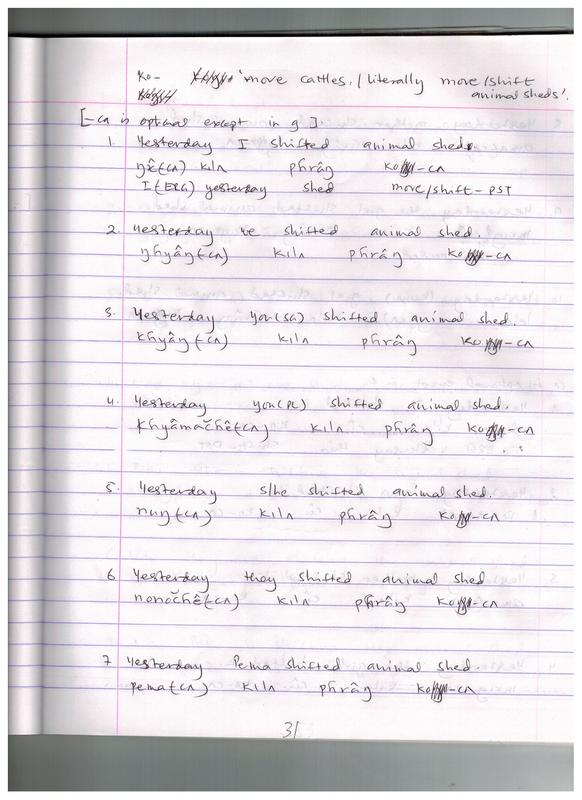 ko- 'move cattles./literally move/shift
animal sheds'.
[-cʌ is optional except in 9]
1. Yesterday I shifted animal shed.
ŋx̂(cʌ) kilʌ phrâŋ ko-cʌ
I(ERG) yesterday shed move/shift-PST
2. Yesterday we shifted animal shed.
ŋhyâŋ(-cʌ) kilʌ phrâŋ ko-cʌ
3. Yesterday you(SG) shifted animal shed.
khyâŋ(-cʌ) kilʌ phrâŋ ko-cʌ
4. Yesterday you(PL) shifted animal shed.
khyâmǝčhê(-cʌ) kilʌ phrâŋ ko-cʌ
5. Yesterday s/he shifted animal shed.
nuŋ(-cʌ) kilʌ phrâŋ ko-cʌ
6 Yesterday they shifted animal shed
nonočhê(-cʌ) kilʌ phrâŋ ko-cʌ
7 Yesterday Pema shifted animal shed.
pema(-cʌ) kilʌ phrâŋ ko-cʌ
31